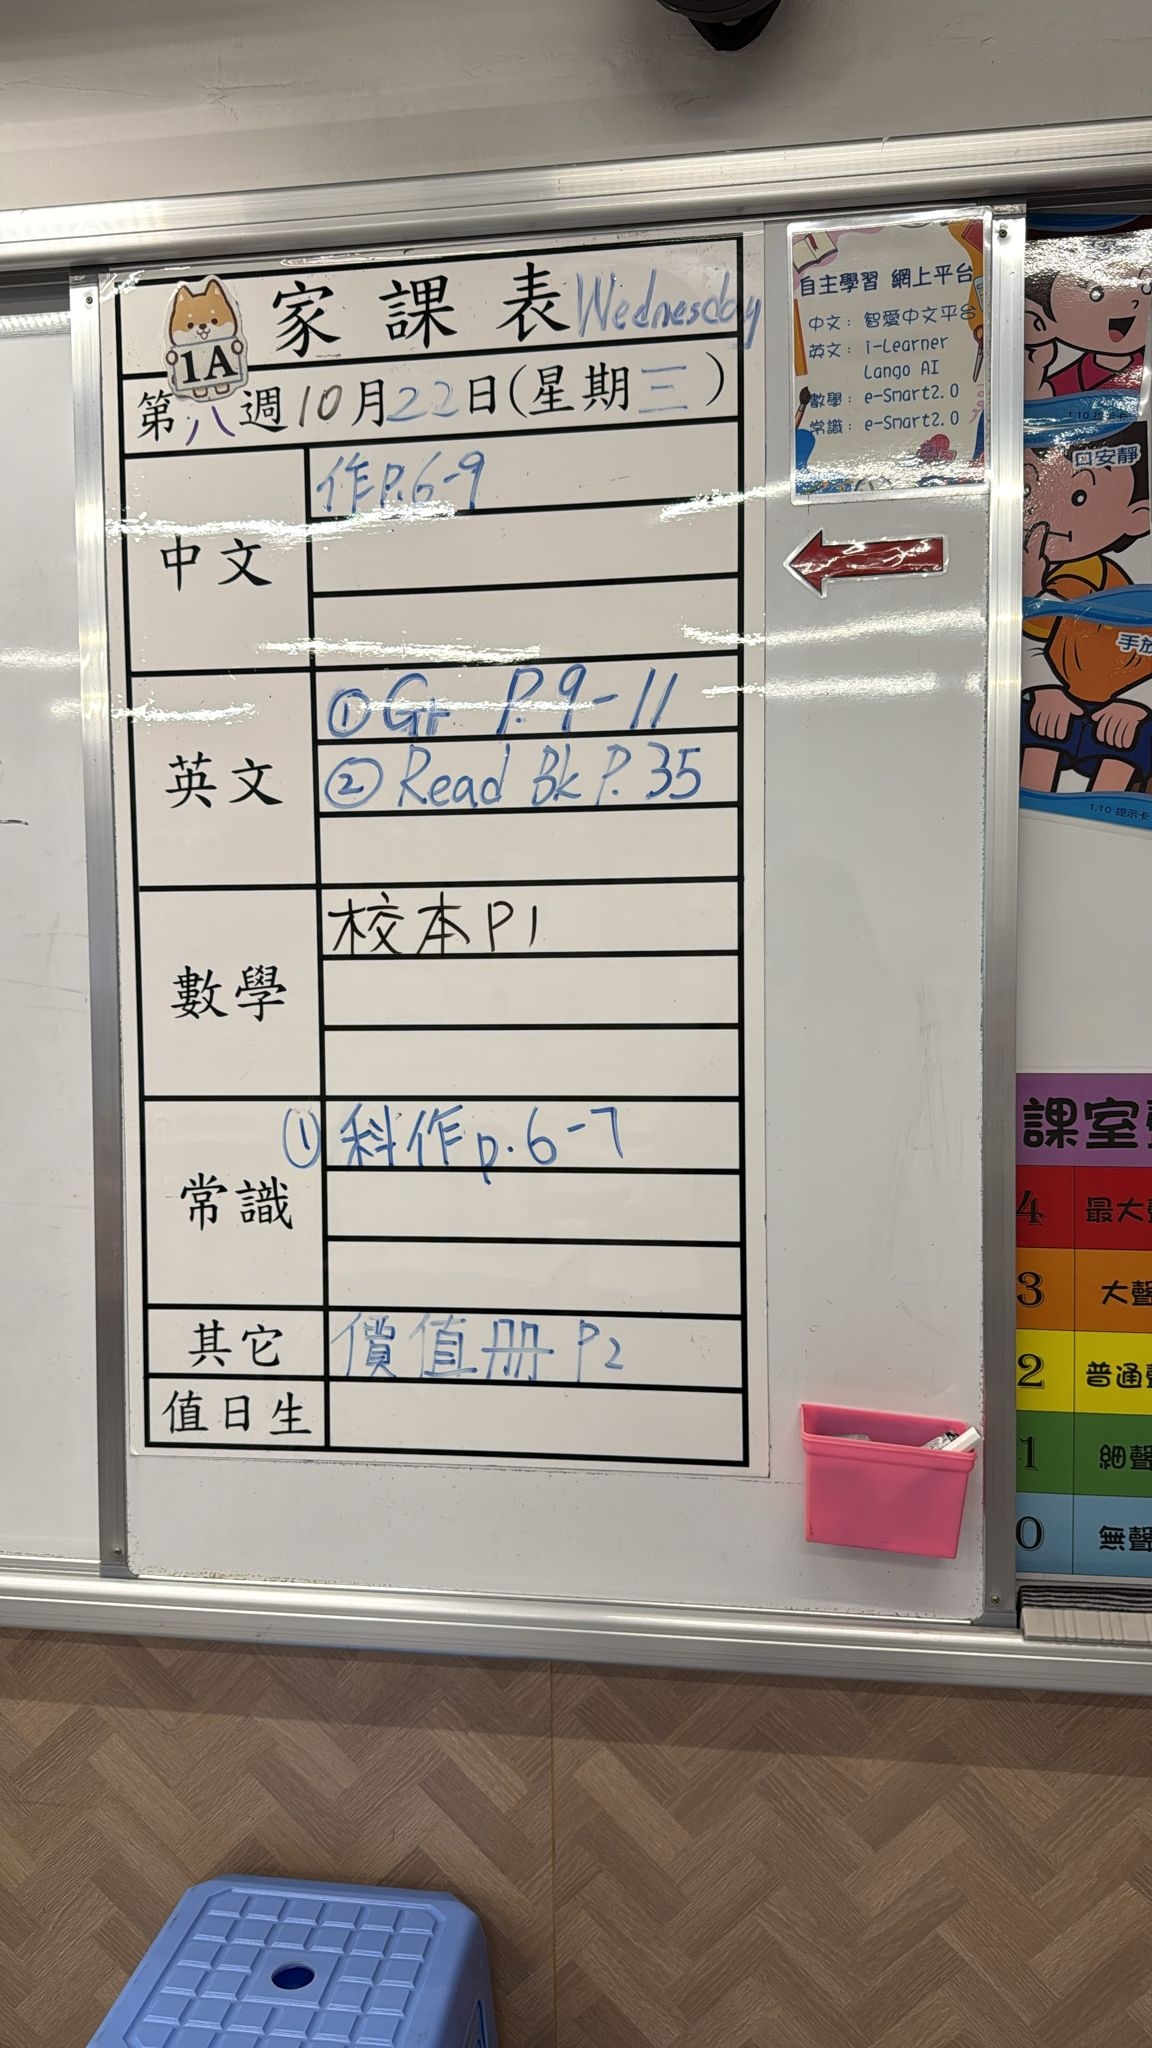 家課表 Wednesday
1A
第八週10月22日(星期三)
中文
作P.6-9
英文
①Gr P.9-11
②Read Bk P.35
數學
校本P1
常識
①科作p.6-7
其它
價值冊 P2
值日生
自主學習 網上平台
中文：智愛中文平台
英文：i-Learner
Lango AI
數學：e-Smart2.0
常識：e-Smart2.0
1.10 提示卡
口安靜
手放
1.10 提示卡
課室
4 最大聲
3 大聲
2 普通聲
1 細聲
0 無聲